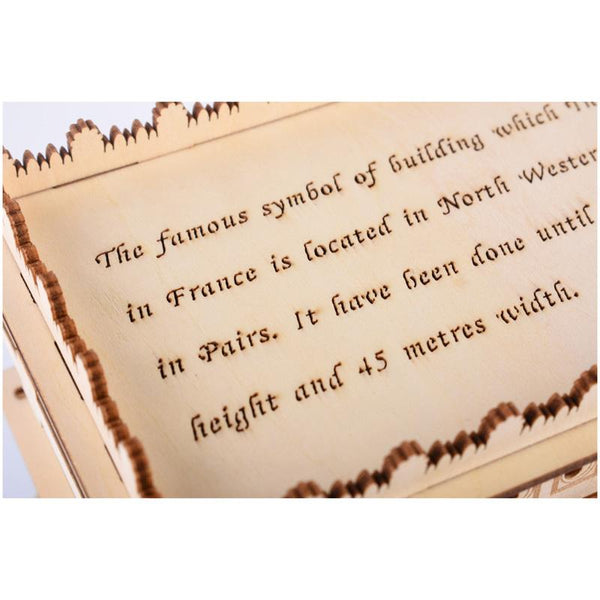 The famous symbol of building which
in France is located in North Wester
in Pairs. It have been done until
height and 45 metres width.